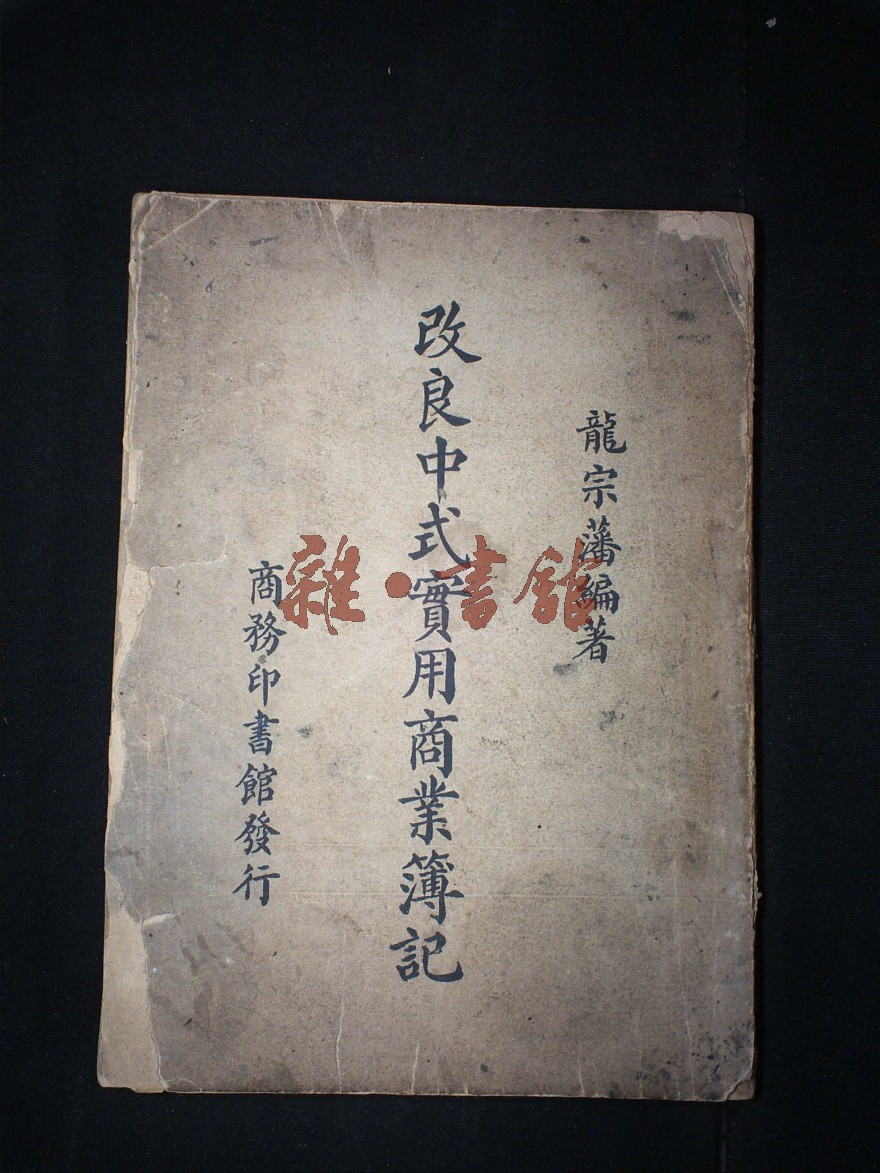 龍宗藩編著
改良中式實用商業簿記
商務印書館發行
雜·書館